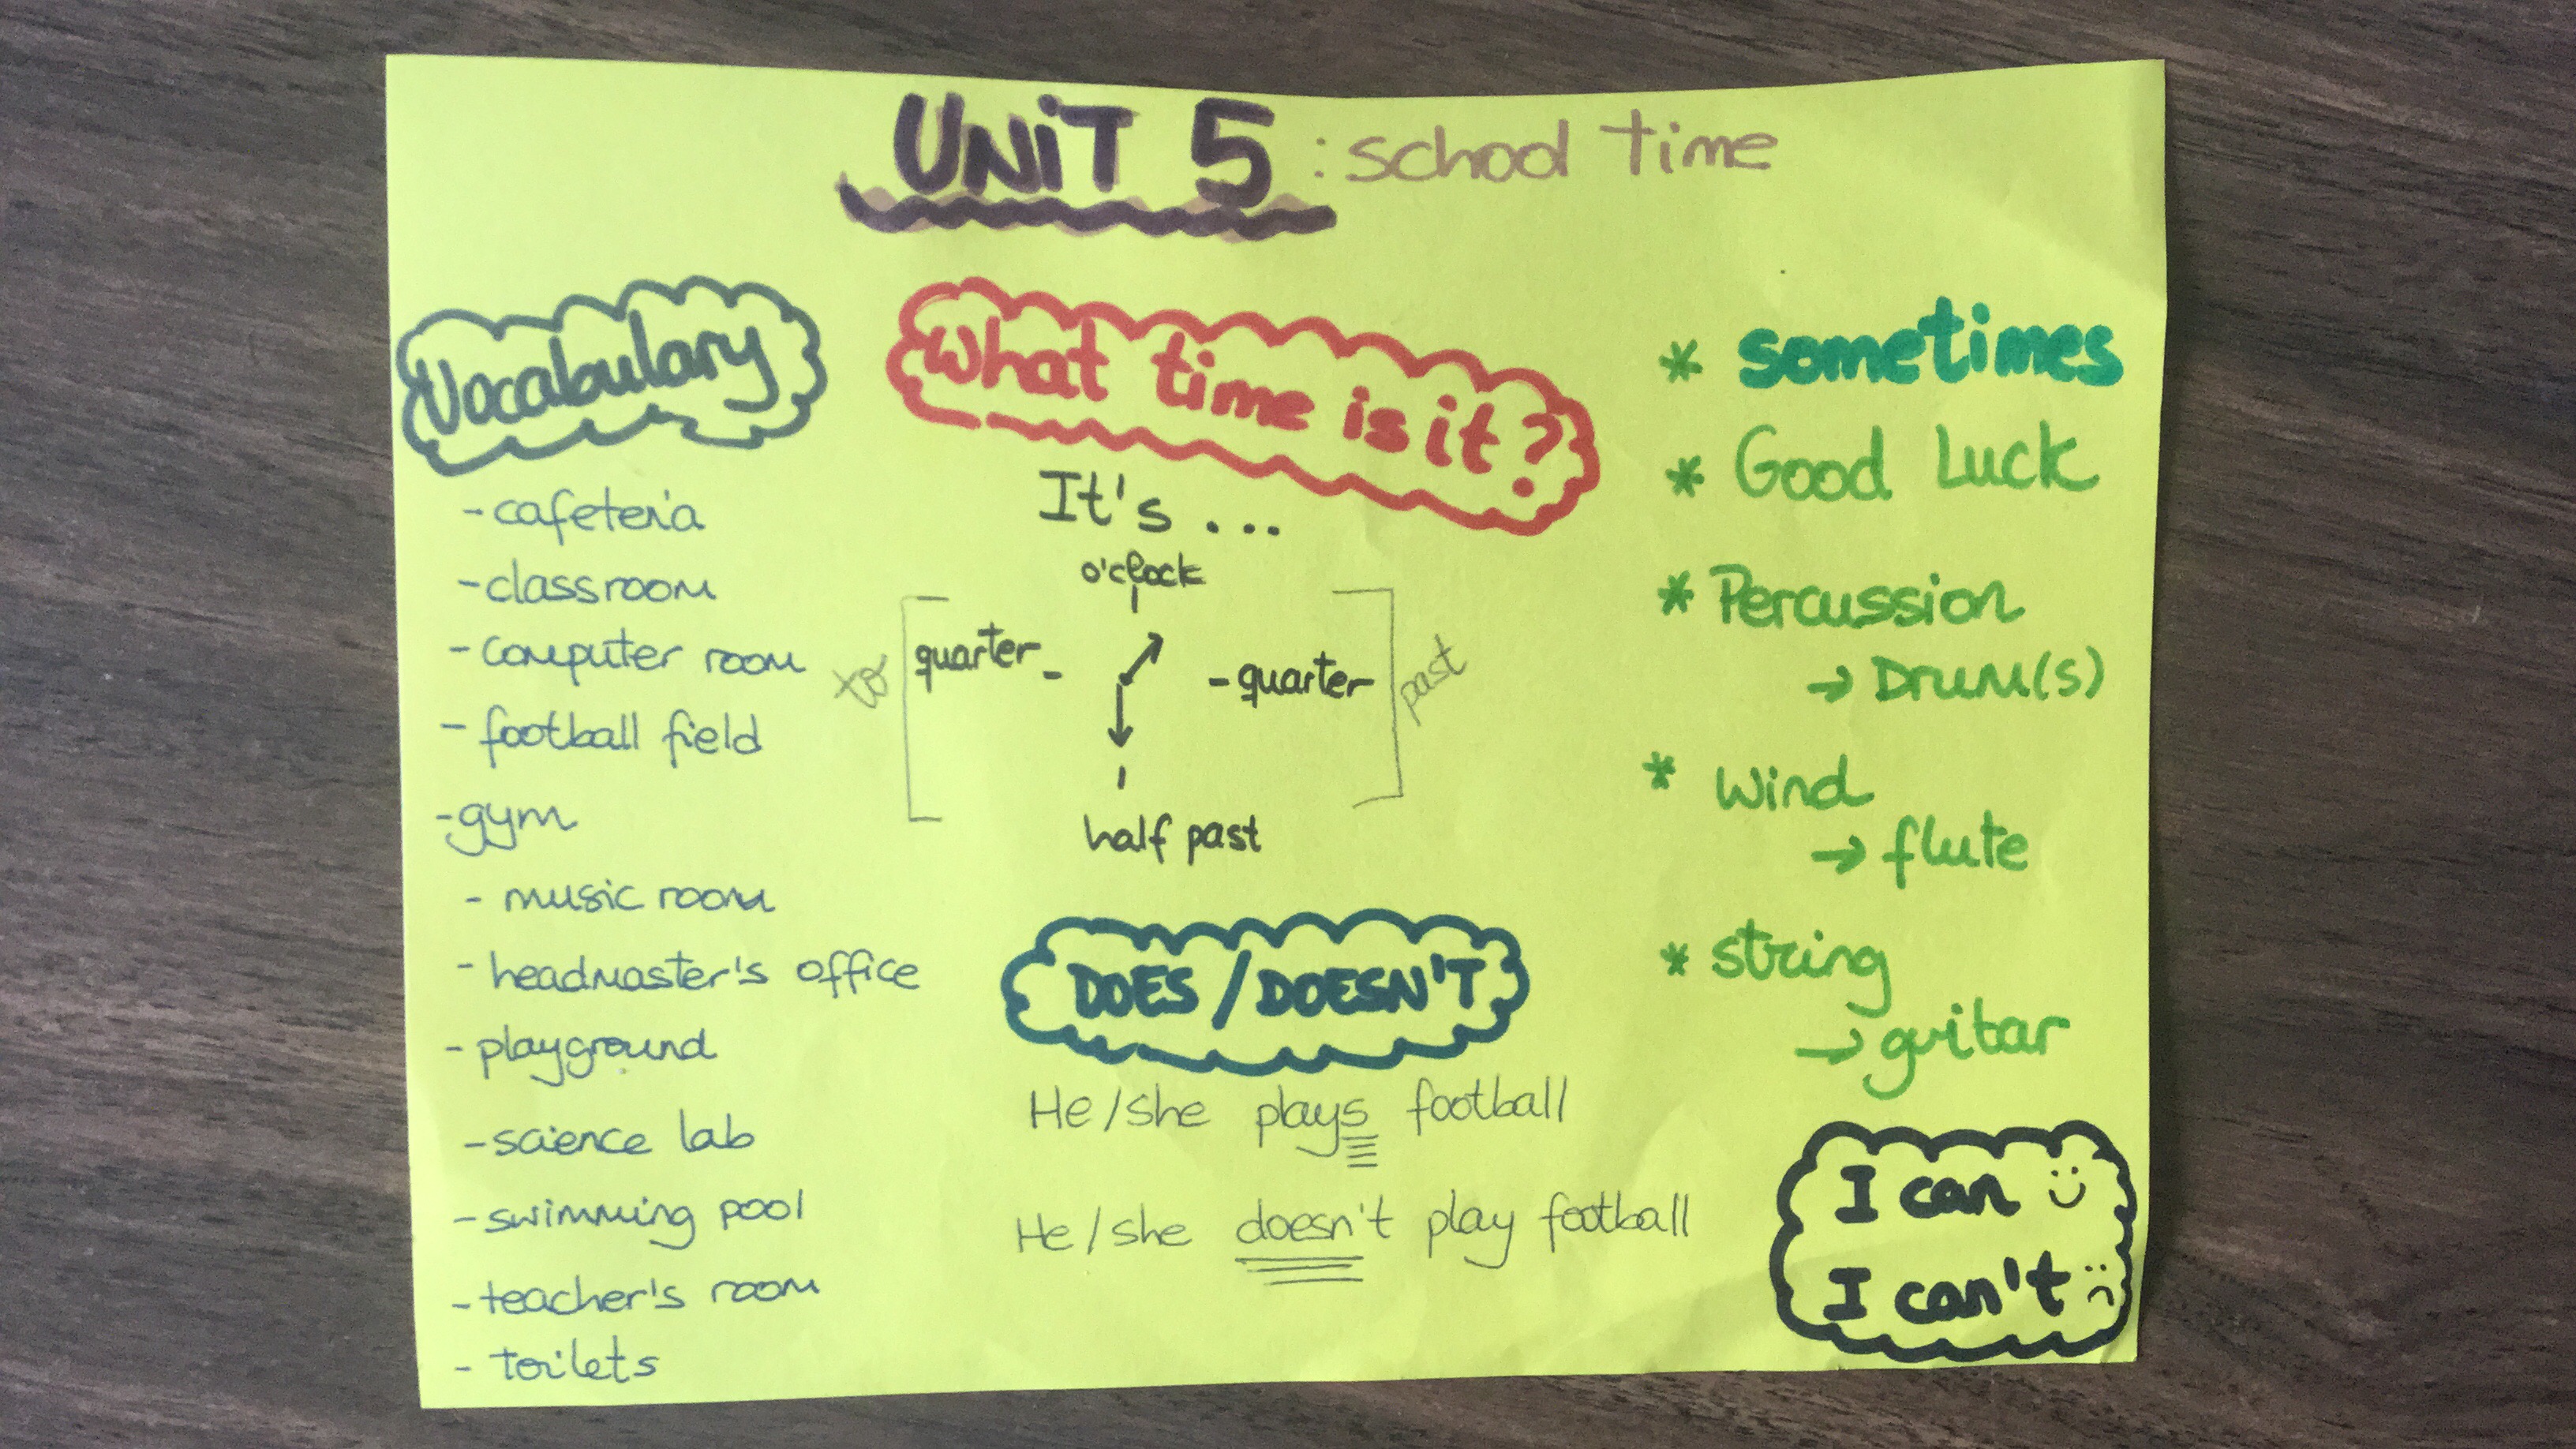 UNiT 5 : school time
Vocabulary
- cafeteria
- classroom
- computer room
- football field
- gym
- music room
- headmaster's office
- playground
- science lab
- swimming pool
- teacher's room
- toilets
What time is it?
It's ...
o'clock
to
quarter -
- quarter
past
half past
DOES/DOESN'T
He/she plays football
He/she doesn't play football
* sometimes
* Good Luck
* Percussion
→ Drum(s)
* Wind
→ flute
* string
→ guitar
I can
I can't